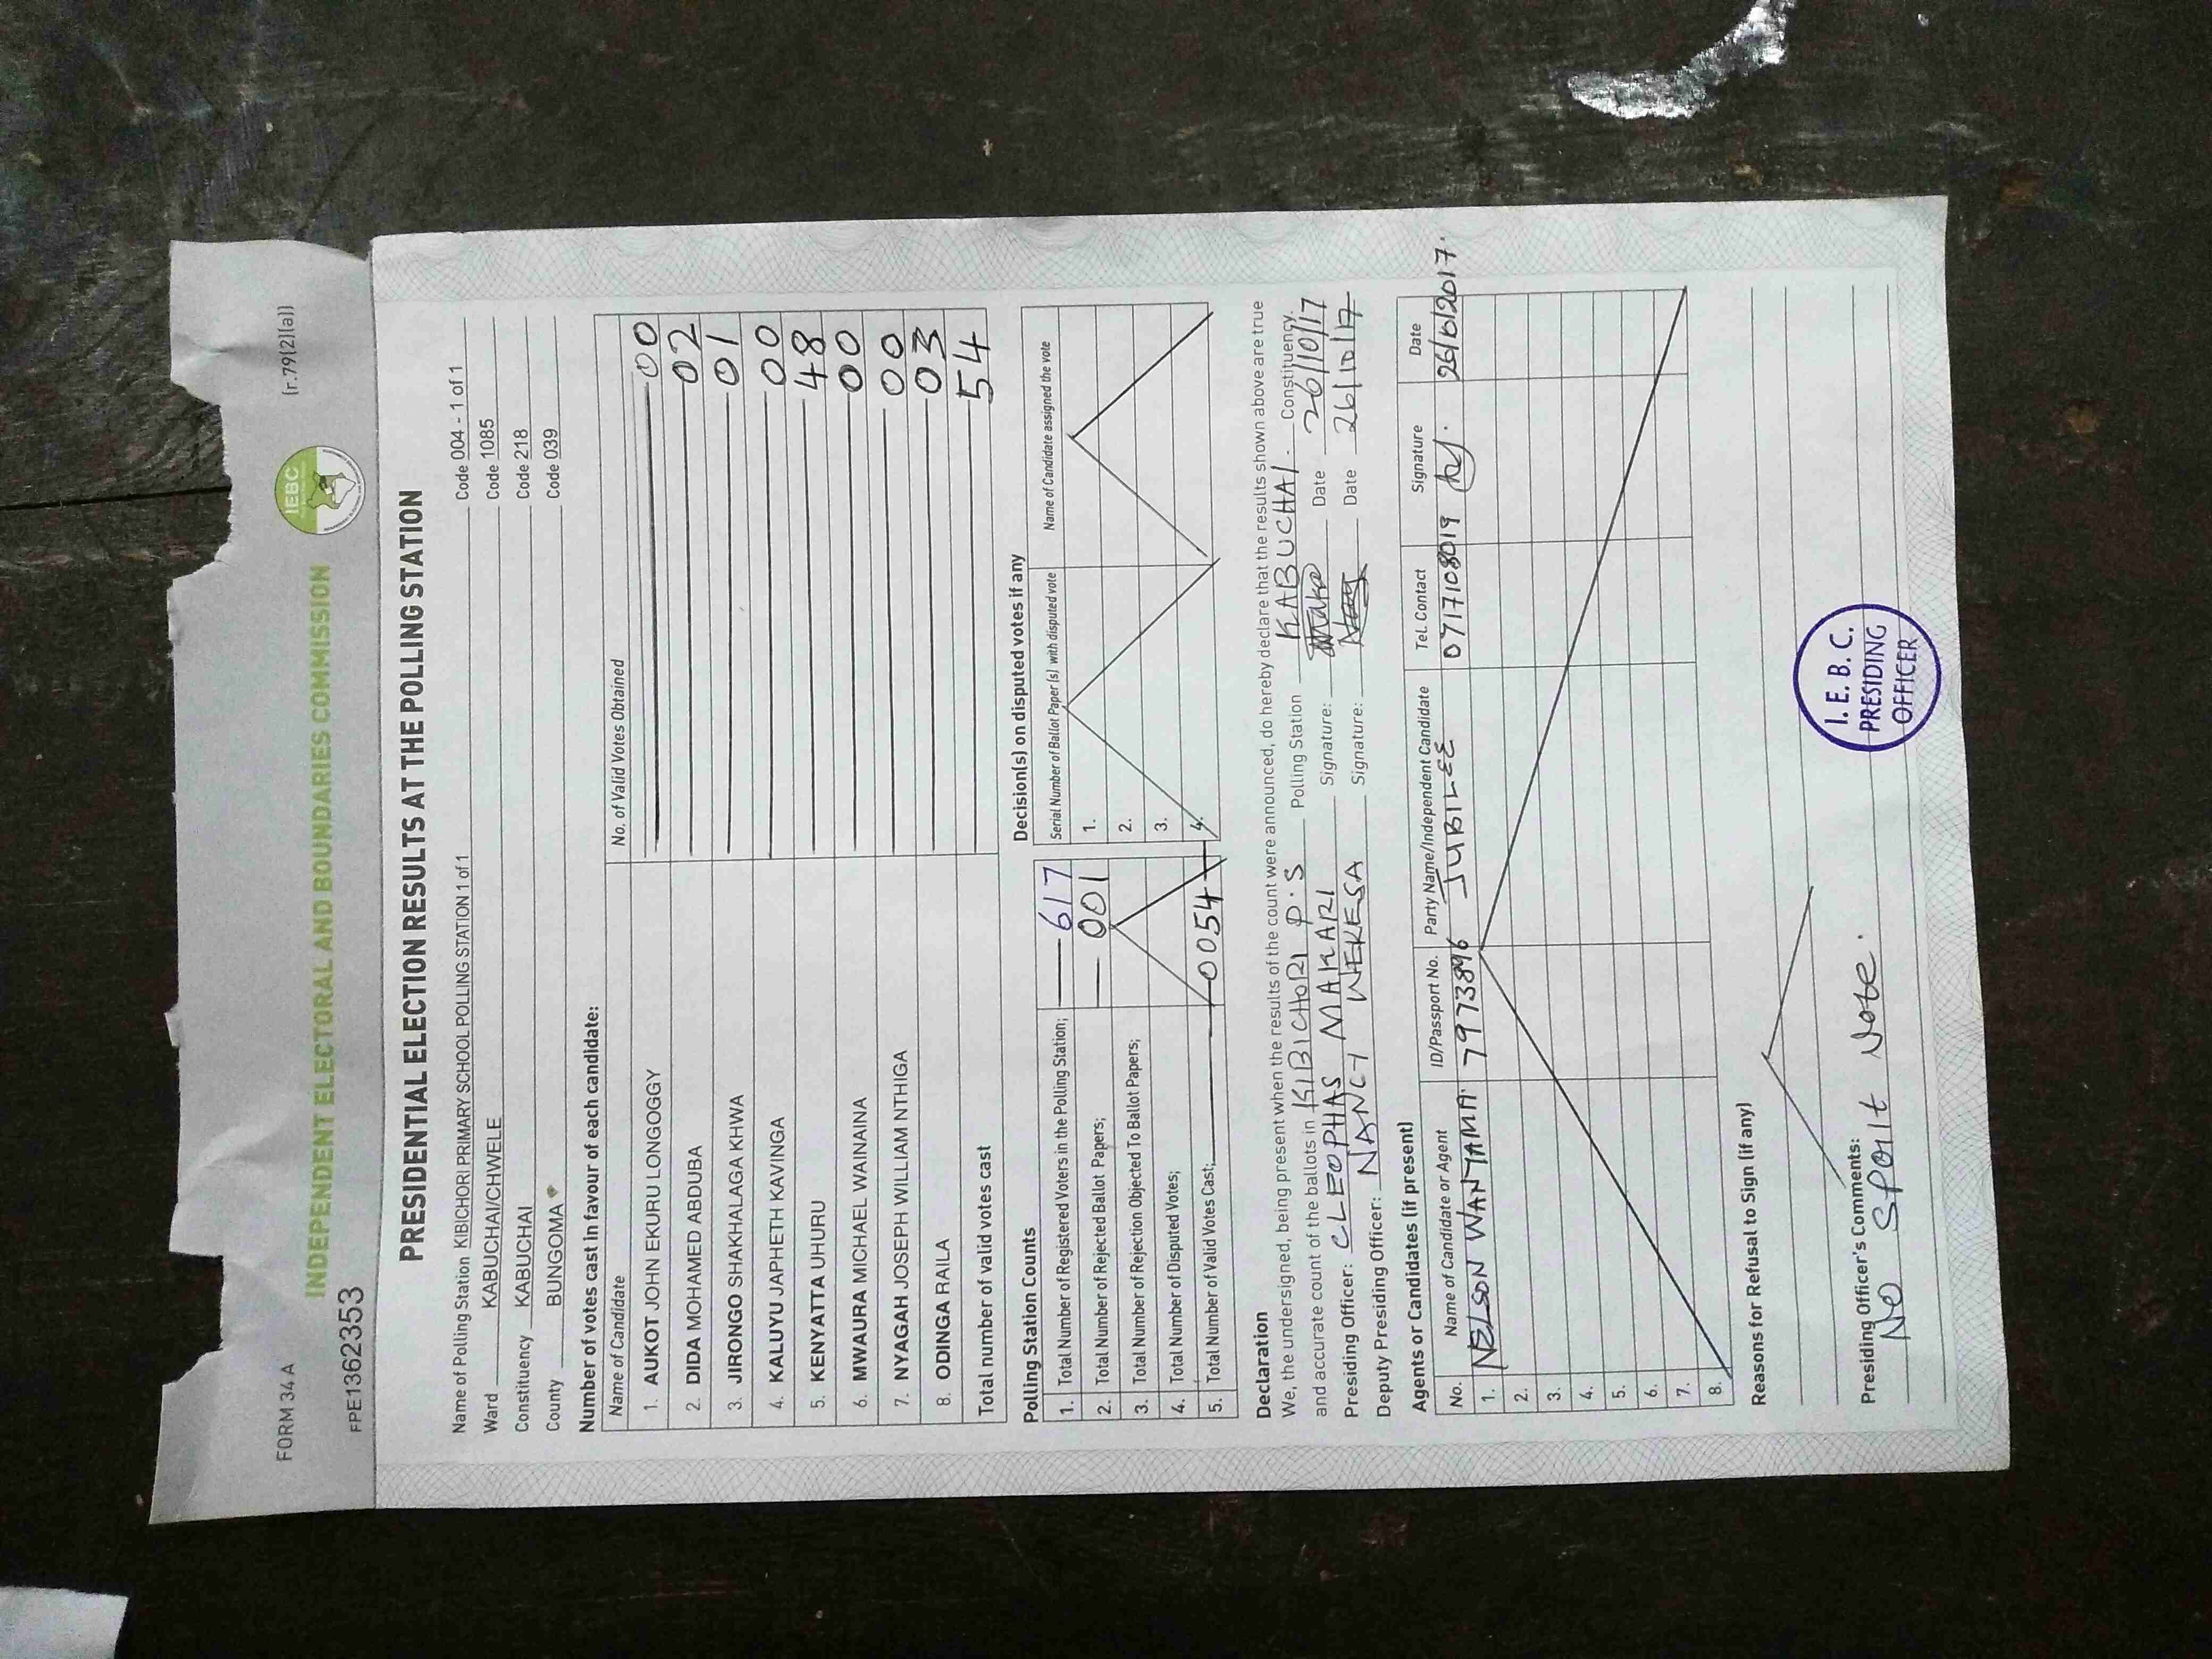 FORM 34 A
(r.79(2)(a))
INDEPENDENT ELECTORAL AND BOUNDARIES COMMISSION
IEBC
FPE1362353
PRESIDENTIAL ELECTION RESULTS AT THE POLLING STATION
Name of Polling Station KIBICHORI PRIMARY SCHOOL POLLING STATION 1 of 1 Code 004 - 1 of 1
Ward KABUCHAI/CHWELE Code 1085
Constituency KABUCHAI Code 218
County BUNGOMA Code 039
Number of votes cast in favour of each candidate:
Name of Candidate No. of Valid Votes Obtained
1. AUKOT JOHN EKURU LONGOGGY 00
2. DIDA MOHAMED ABDUBA 02
3. JIRONGO SHAKHALAGA KHWA 01
4. KALUYU JAPHETH KAVINGA 00
5. KENYATTA UHURU 48
6. MWAURA MICHAEL WAINAINA 00
7. NYAGAH JOSEPH WILLIAM NTHIGA 00
8. ODINGA RAILA 03
Total number of valid votes cast 54
Polling Station Counts
1. Total Number of Registered Voters in the Polling Station; 617
2. Total Number of Rejected Ballot Papers; 001
3. Total Number of Rejection Objected To Ballot Papers;
4. Total Number of Disputed Votes;
5. Total Number of Valid Votes Cast; 0054
Decision(s) on disputed votes if any
Serial Number of Ballot Paper (s) with disputed vote Name of Candidate assigned the vote
1.
2.
3.
4.
Declaration
We, the undersigned, being present when the results of the count were announced, do hereby declare that the results shown above are true
and accurate count of the ballots in KIBICHORI P.S Polling Station KABUCHAI Constituency.
Presiding Officer: CLEOPHAS MAKARI Signature: Date 26/10/17
Deputy Presiding Officer: NANCY WEKESA Signature: Date 26/10/17
Agents or Candidates (if present)
No. Name of Candidate or Agent ID/Passport No. Party Name/Independent Candidate Tel. Contact Signature Date
1. NELSON WANYAMA 7973896 JUBILEE 0717108019 26/10/2017.
2.
3.
4.
5.
6.
7.
8.
Reasons for Refusal to Sign (if any)
Presiding Officer's Comments:
NO SPOILT Note.
I.E.B.C.
PRESIDING
OFFICER